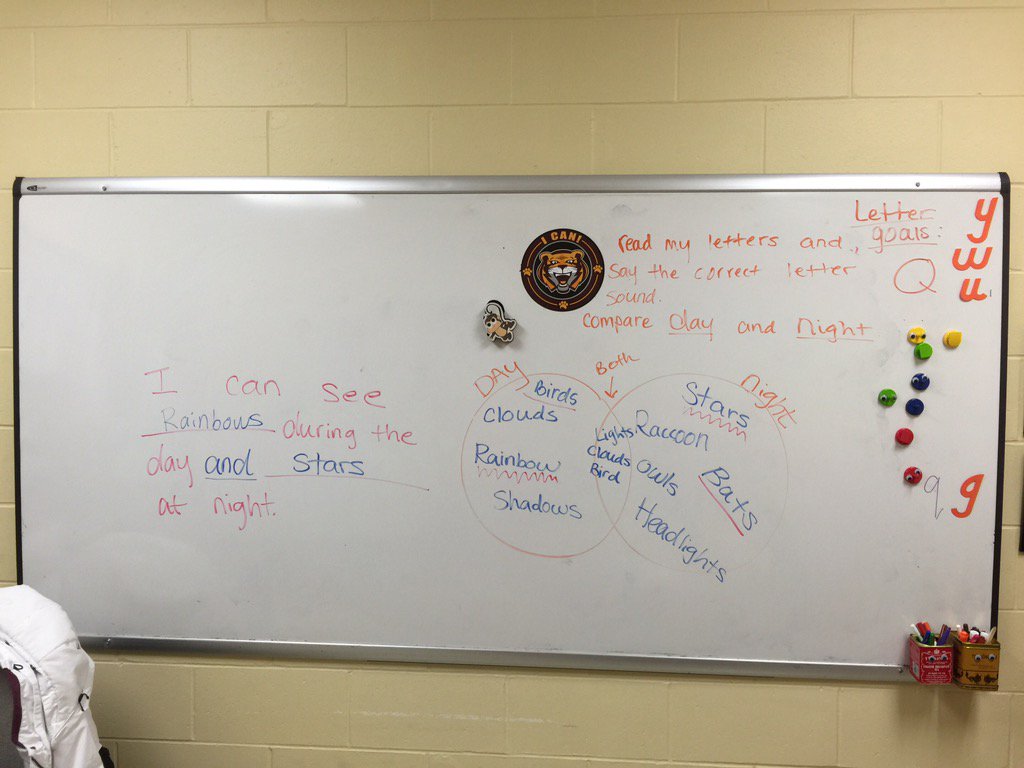 Letter
goals:
y
w
u
Q
I CAN!
read my letters and
say the correct letter
sound.
compare day and night
I can see
Rainbows during the
day and Stars
at night.
DAY
Both
night
Birds
Clouds
Rainbow
Shadows
Lights
Clouds
Bird
Stars
Raccoon
Owls
Bats
Headlights
q g